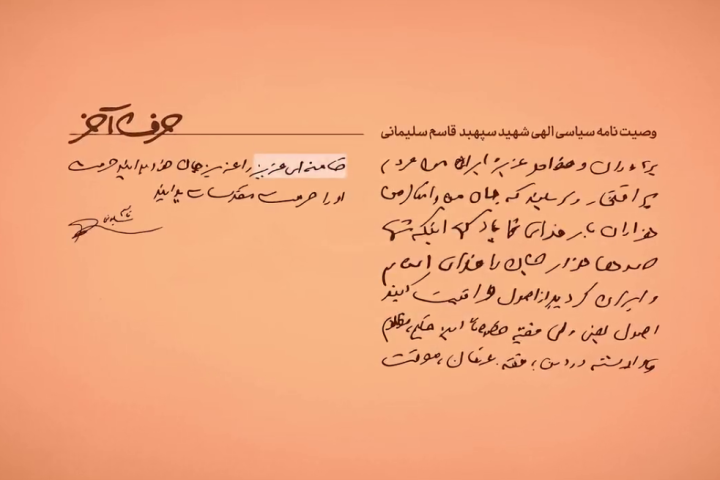 وصیت نامه سیاسی الهی شهید سپهبد قاسم سلیمانی
برادران و خواهران عزیز ایرانی من مردم
پر افتخار و سربلند که جان من و امثال من
هزاران بار فدای شما باد کما اینکه شما
صدها هزار جان را فدای اسلام
و ایران کردید از اصول مراقبت کنید
اصول یعنی ولی فقیه خصوصاً این حکیم، مظلوم
وارسته در دین، فقه، عرفان، معرفت
حرف آخر
خامنه ای عزیز را عزیز جان خود بدانید حرمت
او را حرمت مقدسات بدانید